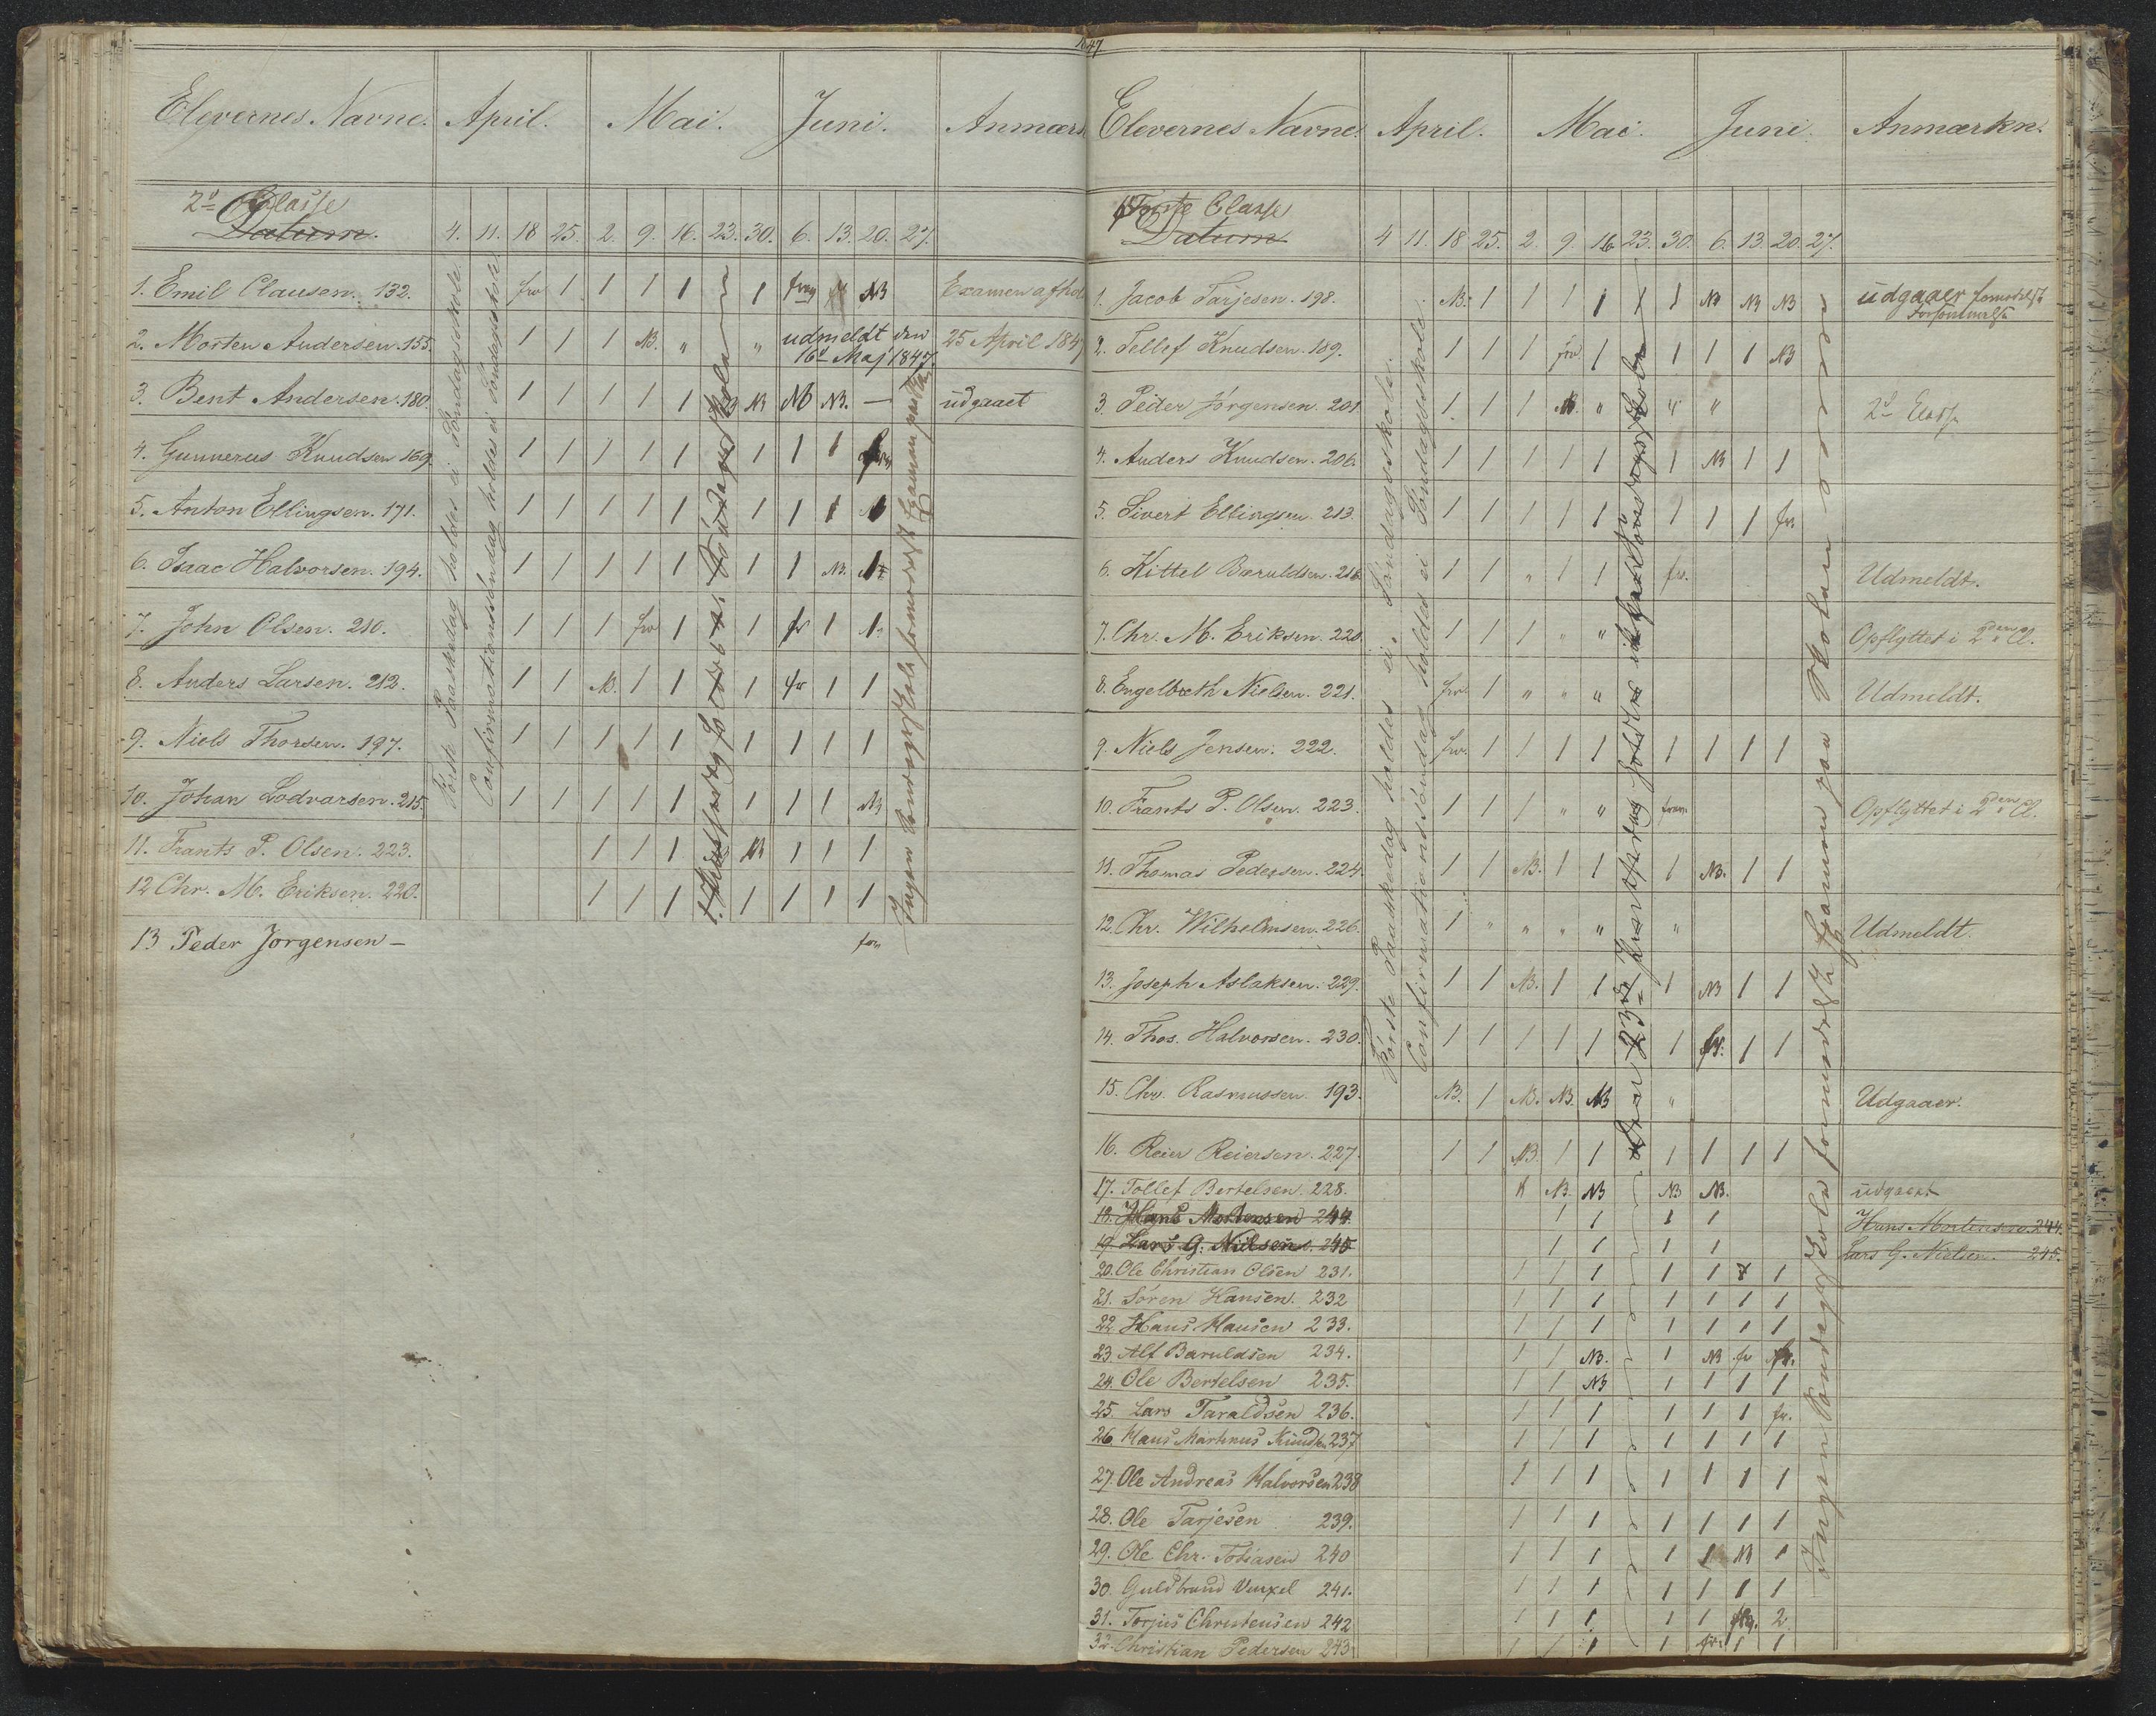 1847
Elevernes Navne. April. Mai. Juni. Anmærk
2d Classe
Datum. 4. 11. 18 25. 2. 9. 16. 23. 30. 6. 13. 20. 27.
1. Emil Clausen. 132. frv 1 1 1 1 1 NB Examen afhol
2. Morten Andersen. 155. 1 1 1 NB. " " udmeldt den 25 April 1847
16d Maj 1847.
3. Bent Andersen. 180. 1 1 1 1 1 NB NB NB NB. — udgaaet
4. Gunnerus Knudsen 169. 1 1 1 1 1 1 1 1
5. Anton Ellingsen. 171. 1 1 1 1 1 1 1 1
6. Isaac Halvorsen. 194. 1 1 1 1 1 1 1 NB.
7. John Olsen. 210. 1 1 1 frv 1 1 fr 1 1
8. Anders Larsen. 212. 1 1 NB. 1 1 1 fr 1 1
9. Niels Thorsen. 197. 1 1 1 1 1 1 1 1 1
10. Johan Lodvarsen. 215. 1 1 1 1 1 1 1 1 NB
11. Frants P. Olsen. 223. 1 1 1 NB 1 1 1
12 Chr. M. Eriksen. 220. 1 1 1 1 1 1 1
13 Peder Jorgensen — frv
Første Paaskedag holdes ei Söndagsskole.
Confirmationssöndag holdes ei Söndagsskole.
Ingen Söndagsskole formedelst Examen paa
Elevernes Navne. April. Mai. Juni. Anmærkn.
Første Classe
Datum 4 11. 18 25. 2. 9. 16. 23. 30. 6. 13. 20. 27.
1. Jacob Tarjesen. 198. NB. 1 1 1 1 1 1 NB NB NB udgaaer formedelst
2. Tellef Knudsen. 189. 1 1 1 frv 1 1 1 1 NB
3. Peder Jörgensen. 201. 1 1 1 NB. " " " 2d Classe
4. Anders Knudsen. 206. 1 1 1 1 1 1 NB 1 1
5. Sivert Ellingsen. 213. 1 1 1 1 1 1 1 1 fr.
6. Kittel Bæruldsen. 216. 1 1 " 1 1 fr. Udmeldt.
7. Chr. M. Eriksen. 220. 1 1 1 " " Opflyttet i 2den Cl.
8. Engelbreth Nielsen. 221. frv. 1 " " " Udmeldt.
9. Niels Jensen. 222. frv. 1 1 1 1 1 1 1 1
10. Frants P. Olsen. 223. 1 1 1 " " Opflyttet i 2den Cl.
11. Thomas Pedersen. 224. 1 1 NB. 1 1 1 NB. 1 1
12. Chr. Wilhelmsen. 226. 1 " " " " " Udmeldt.
13. Joseph Aslaksen. 229. 1 1 NB. 1 1 1 NB 1 1
14. Thos. Halvorsen. 230. 1 1 1 1 1 1 fr. 1 1
15. Chr. Rasmussen. 193. NB. 1 NB. NB. NB " Udgaaer.
16. Reier Reiersen. 227. 1 1 NB. 1 1 1 1 1 1
17. Tollef Bertelsen. 228. NB. NB NB NB. udgaaet
18. Hans Mortensen 244. 1 1 1 1 Hans Mortensen. 244.
19. Lars G. Nielsen. 245 1 1 1 1 Lars G. Nielsen. 245.
20. Ole Christian Olsen 231. 1 1 1 1 1 1
21. Sören Hansen. 232 1 1 1 1 1 1 1
22. Hans Hansen 233. 1 1 1 1 1 1 1
23. Alf Baruldsen 234. 1 1 NB. 1 NB fr fr.
24. Ole Bertelsen 235. 1 1 NB 1 1 1 1
25. Lars Taraldsen 236. 1 1 1 1 1 1 fr.
26. Hans Martinus Knudsen 237 1 1 1 1 1 1 1
27. Ole Andreas Halvorsen 238 1 1 1 1 1 1 1
28. Ole Tarjesen 239. 1 1 1 1 1 1 1
29. Ole Chr. Tobiasen 240 1 1 1 1 1 NB 1
30 Guldbrand Venxel 241. 1 1 1 1 1 1 1
31. Torjus Christensen 242 1 1 1 1 1 2
32. Christian Pedersen 243 1 1 1 1 fr. 1 1
Første Paaskedag holdes ei Söndagsskole.
Confirmationssöndag holdes ei Söndagsskole.
Ingen Söndagsskole formedelst Examen paa Skolen